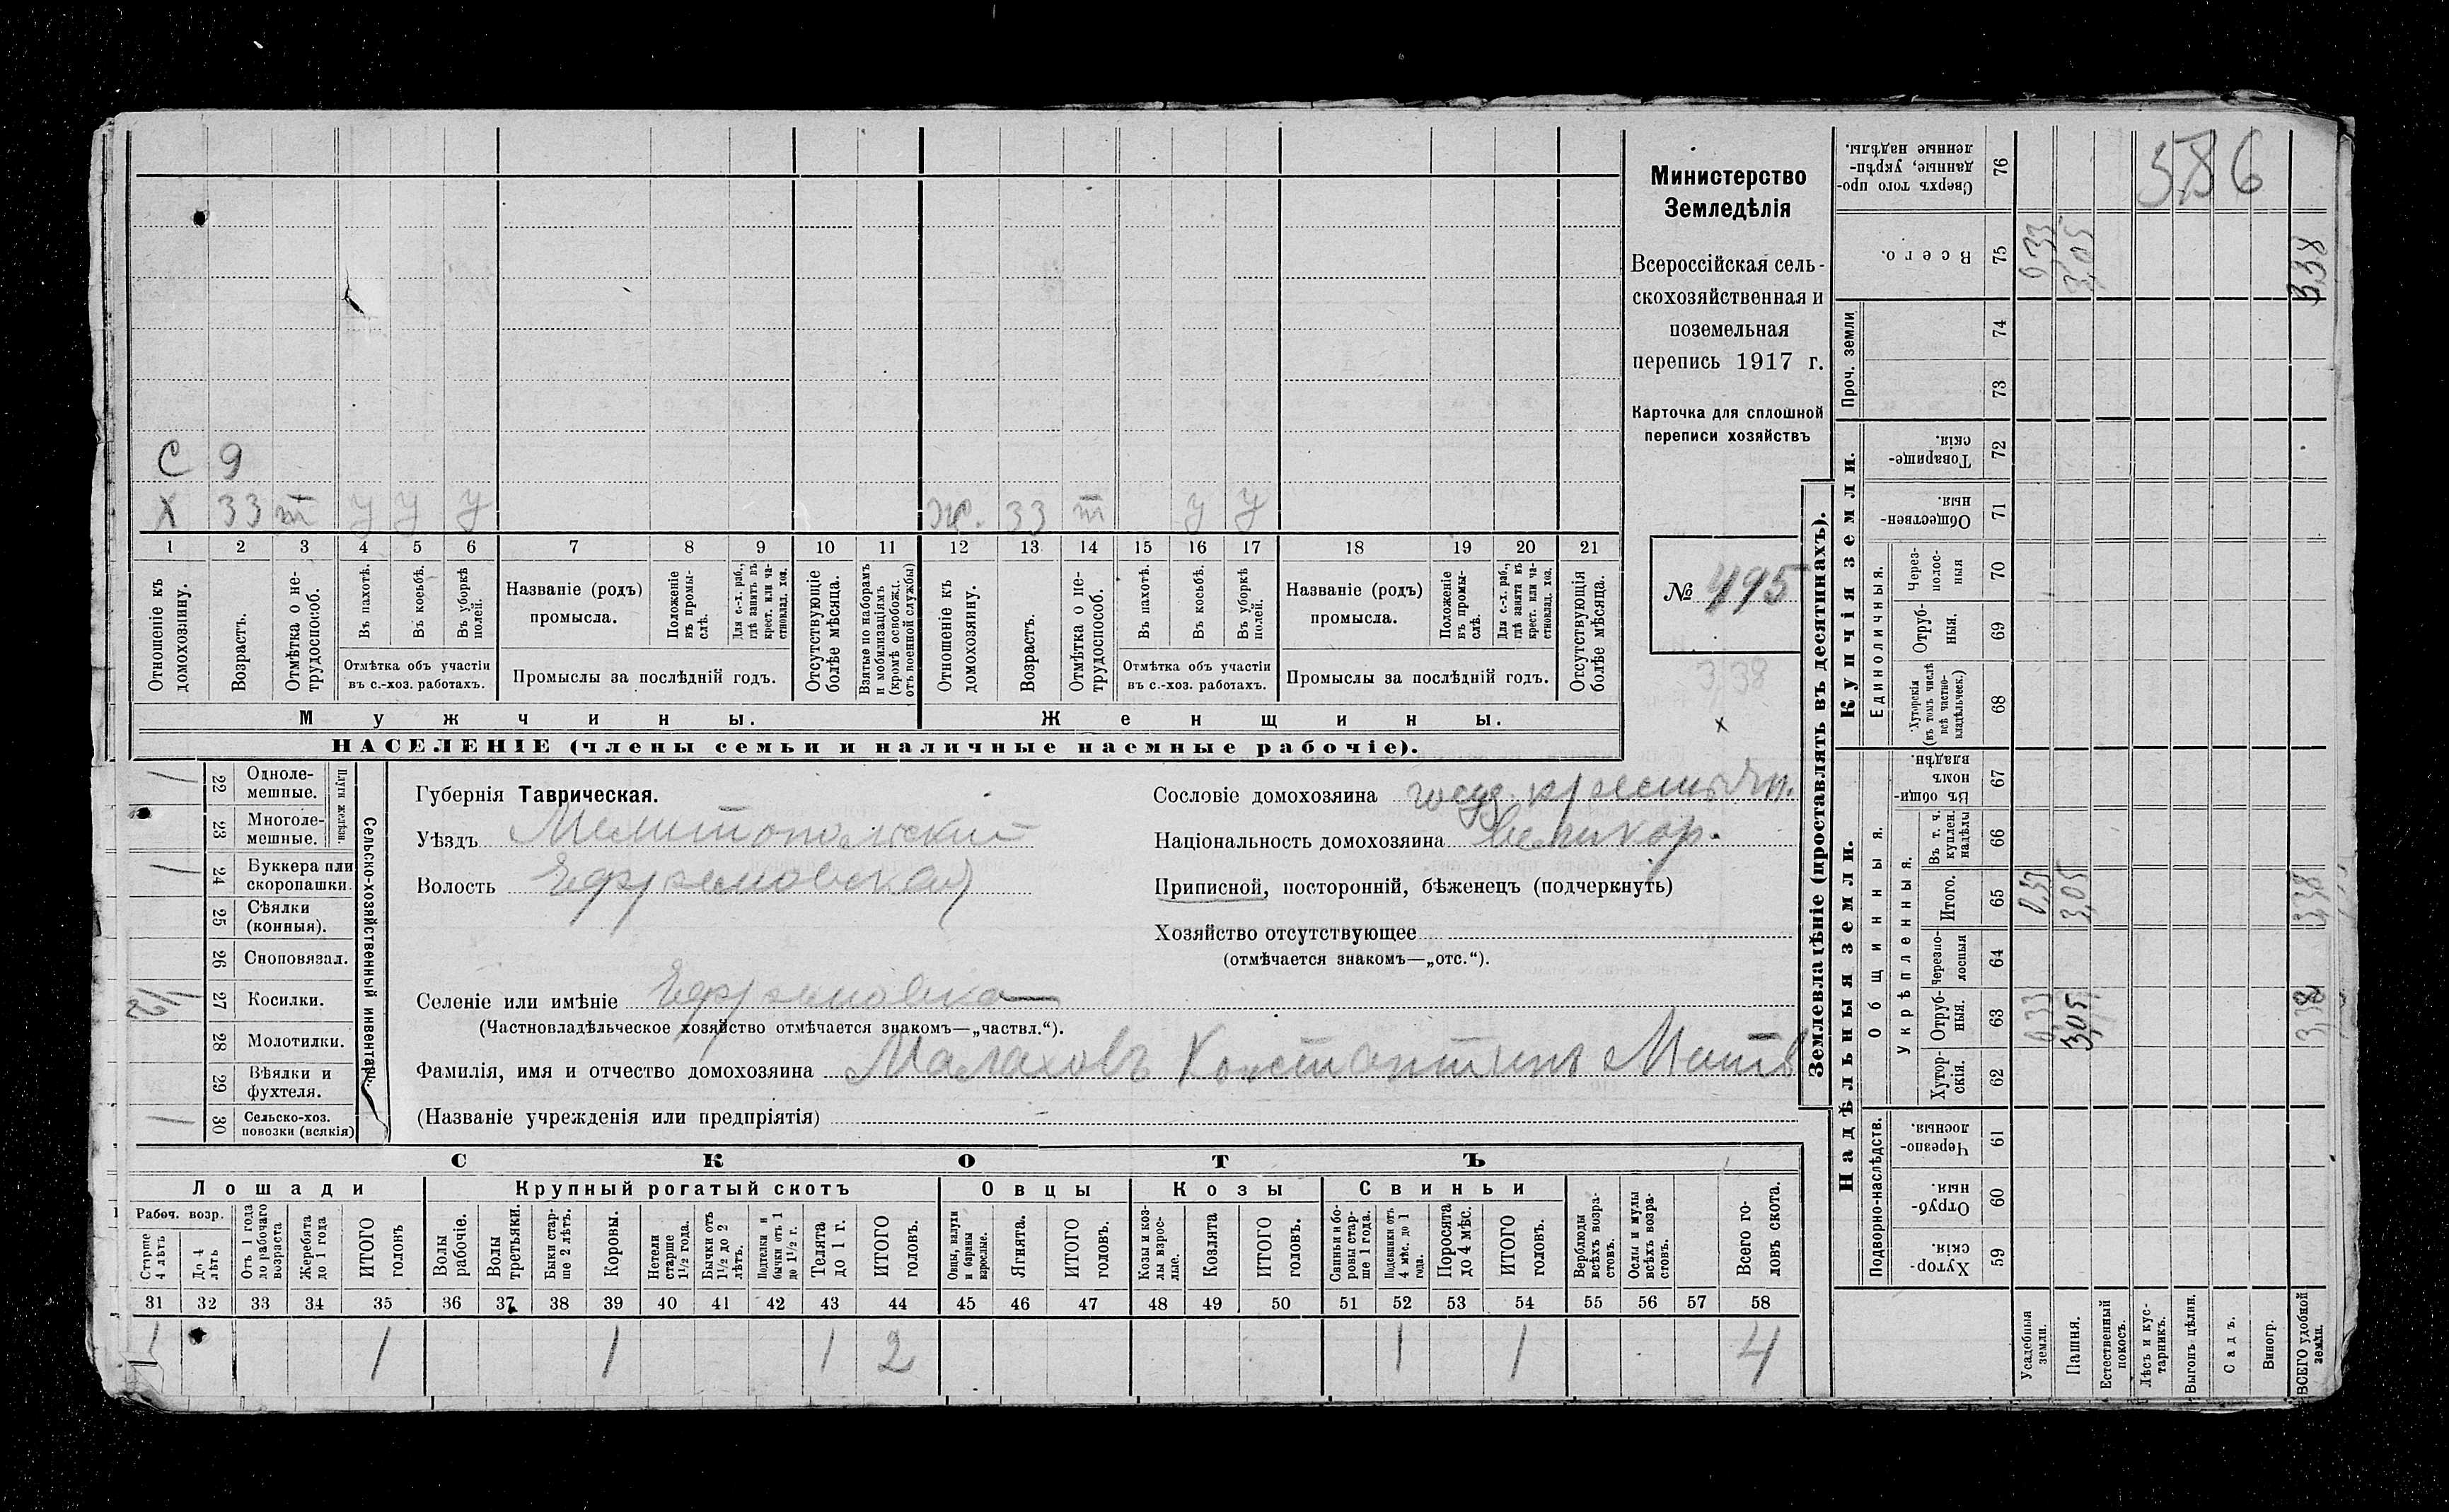 Министерство
Земледѣлія
Всероссійская сель-
скохозяйственная и
поземельная
перепись 1917 г.
Карточка для сплошной
переписи хозяйствъ
№ 495
3,38
x
586
С 9
Х 33 т У У У Ж. 33 т У У
1 2 3 4 5 6 7 8 9 10 11 12 13 14 15 16 17 18 19 20 21
Отношеніе къ домохозяину.
Возрастъ.
Отмѣтка о не-трудоспособ.
Въ пахотѣ.
Въ косьбѣ.
Въ уборкѣ полей.
Отмѣтка объ участіи
въ с.-хоз. работахъ.
Названіе (родъ)
промысла.
Положеніе въ промы-слѣ.
Для с.-х. раб., гдѣ занятъ въ крест. или ча-стновлад. хоз.
Промыслы за послѣдній годъ.
Отсутствующіе болѣе мѣсяца.
Взятые по наборамъ и мобилизаціямъ (кромѣ освобожд. отъ военной службы)
Отношеніе къ домохозяину.
Возрастъ.
Отмѣтка о не-трудоспособ.
Въ пахотѣ.
Въ косьбѣ.
Въ уборкѣ полей.
Отмѣтка объ участіи
въ с.-хоз. работахъ.
Названіе (родъ)
промысла.
Положеніе въ промы-слѣ.
Для с.-х. раб., гдѣ занята въ крест. или ча-стновлад. хоз.
Промыслы за послѣдній годъ.
Отсутствующія болѣе мѣсяца.
Мужчины. Женщины.
НАСЕЛЕНІЕ (члены семьи и наличные наемные рабочіе).
Сельско-хозяйственный инвентарь.
Плуги желѣзн.
1 22 Одноле-мешные.
23 Многоле-мешные.
1 24 Буккера или скоропашки.
25 Сѣялки (конныя).
26 Сноповязал.
27 Косилки.
28 Молотилки.
29 Вѣялки и фухтеля.
1 30 Сельско-хоз. повозки (всякія)
Губернія Таврическая.
Уѣздъ Мелитопольскій
Волость Ефремовская
Селеніе или имѣніе Ефремовка
(Частновладѣльческое хозяйство отмѣчается знакомъ—„частвл.“).
Фамилія, имя и отчество домохозяина Малаховъ Константинъ Матв
(Названіе учрежденія или предпріятія)
Сословіе домохозяина госуд. крестьян.
Національность домохозяина Великор.
Приписной, посторонній, бѣженецъ (подчеркнуть)
Хозяйство отсутствующее
(отмѣчается знакомъ—„отс.“).
СКОТЪ
Лошади Крупный рогатый скотъ Овцы Козы Свиньи
Рабоч. возр.
Старше 4 лѣтъ
До 4 лѣтъ
Отъ 1 года до рабочаго возраста
Жеребята до 1 года
ИТОГО головъ
Волы рабочіе.
Волы третьяки.
Быки стар-ше 2 лѣтъ.
Коровы.
Нетели старше 1½ года.
Бычки отъ 1½ до 2 лѣтъ.
Подтелки и бычки отъ 1 до 1½ г.
Телята до 1 г.
ИТОГО головъ.
Овцы, валухи и бараны взрослые.
Ягнята.
ИТОГО головъ.
Козы и коз-лы взрос-лые.
Козлята
ИТОГО головъ.
Свиньи и бо-ровы стар-ше 1 года.
Подсвинки отъ 4 мѣс. до 1 года.
Поросята до 4 мѣс.
ИТОГО головъ.
Верблюды всѣхъ возра-стовъ.
Ослы и мулы всѣхъ возра-стовъ.
Всего го-ловъ скота.
31 32 33 34 35 36 37 38 39 40 41 42 43 44 45 46 47 48 49 50 51 52 53 54 55 56 57 58
1 1 1 1 2 1 1 4
Землевладѣніе (проставлять въ десятинахъ).
Сверхъ того про-данные, укрѣп-ленные надѣлы. 76
Всего. 75 0,33 3,05 3,38
Проч. земли
74
73
Купчія земли.
Товарище-скія. 72
Обществен-ныя. 71
Единоличныя.
Через-полос-ныя 70
Отруб-ныя. 69
Хуторскія (въ томъ числѣ всѣ частно-владѣльческ.) 68
Надѣльныя земли.
Общинныя.
Въ общи-номъ владѣн. 67
Укрѣпленныя.
Въ т. ч. куплен. надѣлы 66
Итого. 65 0,33 3,05 3,38
Черезпо-лосныя 64
Отруб-ныя. 63 0,33 3,05 3,38
Хутор-скія. 62
Подворно-наслѣдств.
Черезпо-лосныя 61
Отруб-ныя. 60
Хутор-скія. 59
Усадебныя земли.
Пашня.
Естественный покосъ.
Лѣсъ и кус-тарникъ.
Выгонъ цѣлин.
Садъ.
Виногр.
ВСЕГО удобной земли.